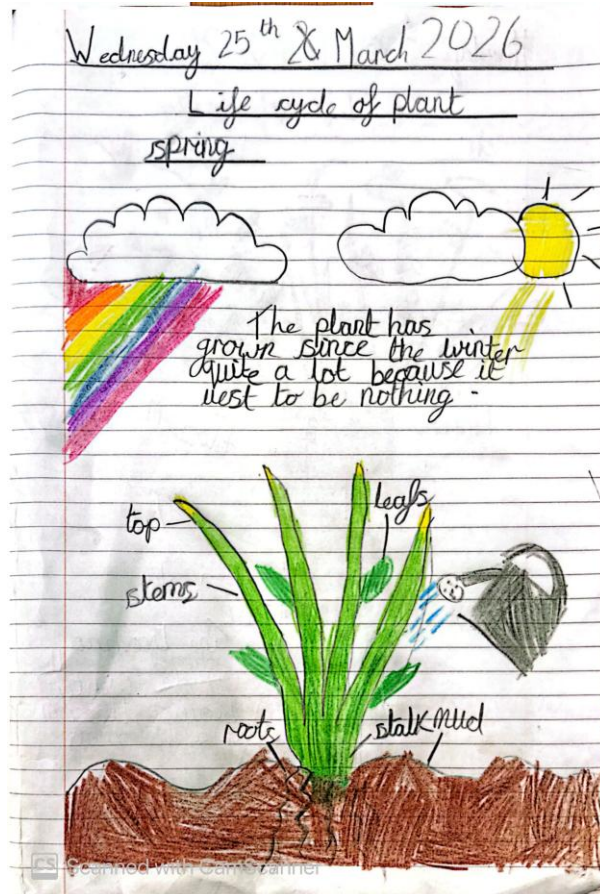 Wednesday 25th & March 2026
Life cycle of plant
spring
The plant has
grown since the winter
quite a lot because it
uest to be nothing -
top
leafs
stems
roots
stalk
mud
CS Scanned with CamScanner